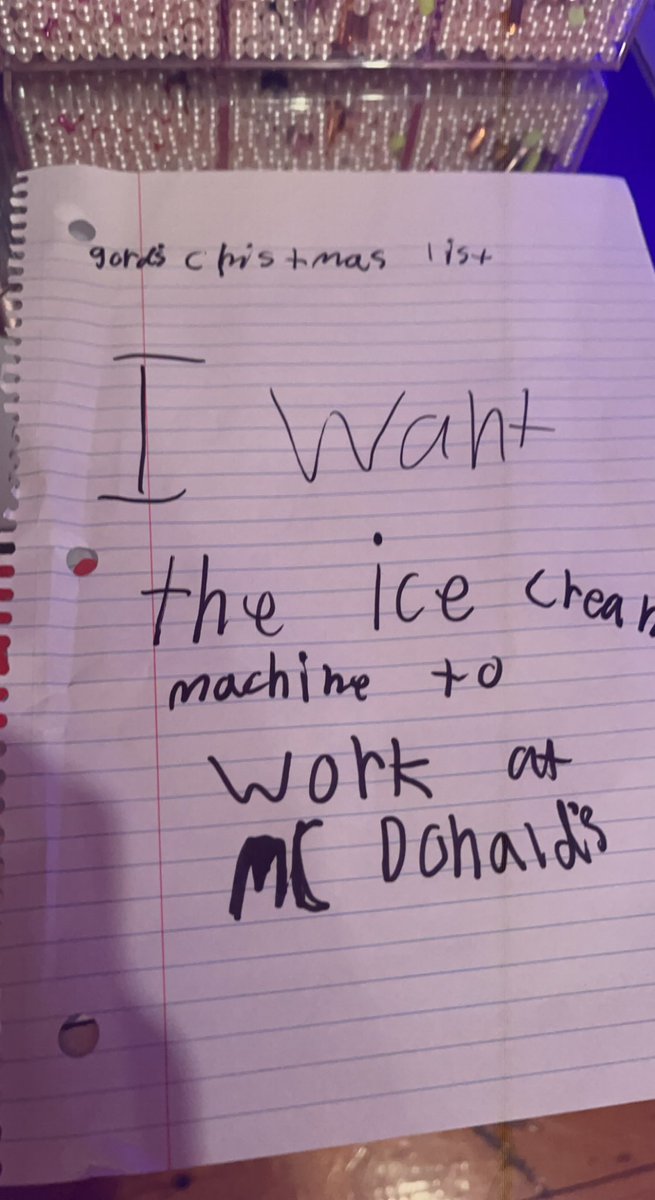 gord's christmas list
I want
the ice cream
machine to
work at
MC Donald's